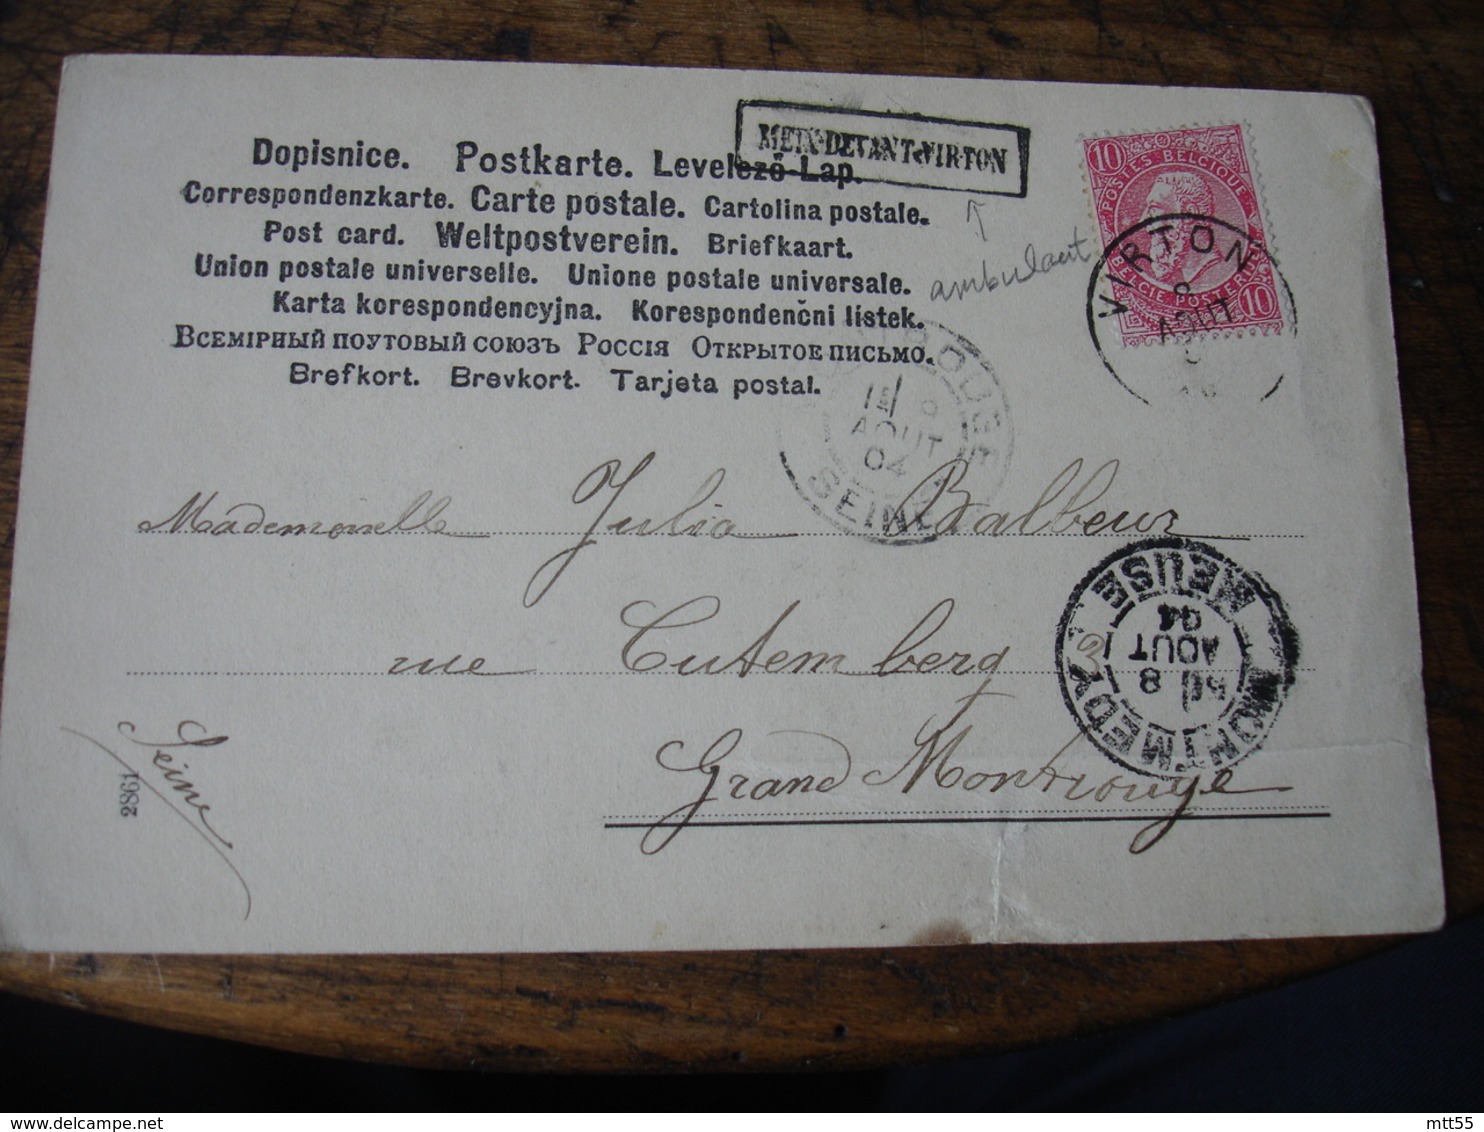 MEIX-DEVANT-VIRTON
Dopisnice. Postkarte. Levelező-Lap.
Correspondenzkarte. Carte postale. Cartolina postale.
Post card. Weltpostverein. Briefkaart.
Union postale universelle. Unione postale universale.
Karta korespondencyjna. Korespondenčni listek.
Всемірный поутовый союзъ Россія Открытое письмо.
Brefkort. Brevkort. Tarjeta postal.
ambulant
10 POSTES BELGIQUE
BELGIE POSTERIJEN 10
VIRTON
8
AOUT
ROUGE
AOUT
04
SEINE
Mademoiselle Julia Balbeur
rue Cutemberg
Grand Montrouge
Seine
2861
MONTMEDY
8
AOUT
04
MEUSE
mtt55